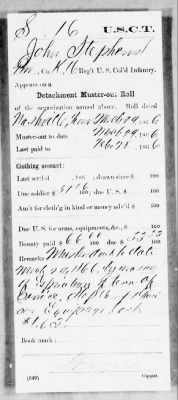 S 16 U.S.C.T.
John Stephens
Pvt., Co. K, 16 Reg't U. S. Col'd Infantry.
Appears on a
Detachment Muster-out Roll
of the organization named above. Roll dated
Nashville, Tenn. Mch 29, 1866
Muster-out to date Mch 29, 1866
Last paid to Feb 28, 1866
Clothing account:
Last settled , 186 ; drawn since $ 100
Due soldier $ 100; due U. S. $ 100
Am't for cloth'g in kind or money adv'd $ 100
Due U. S. for arms, equipments, &c., $ 100
Bounty paid $ 66 100; due $ 33 33 100
Remarks: Mustered out to date
by reason
of Expiration of Term of
Service.
Lost
Book mark:
(349) Copyist.